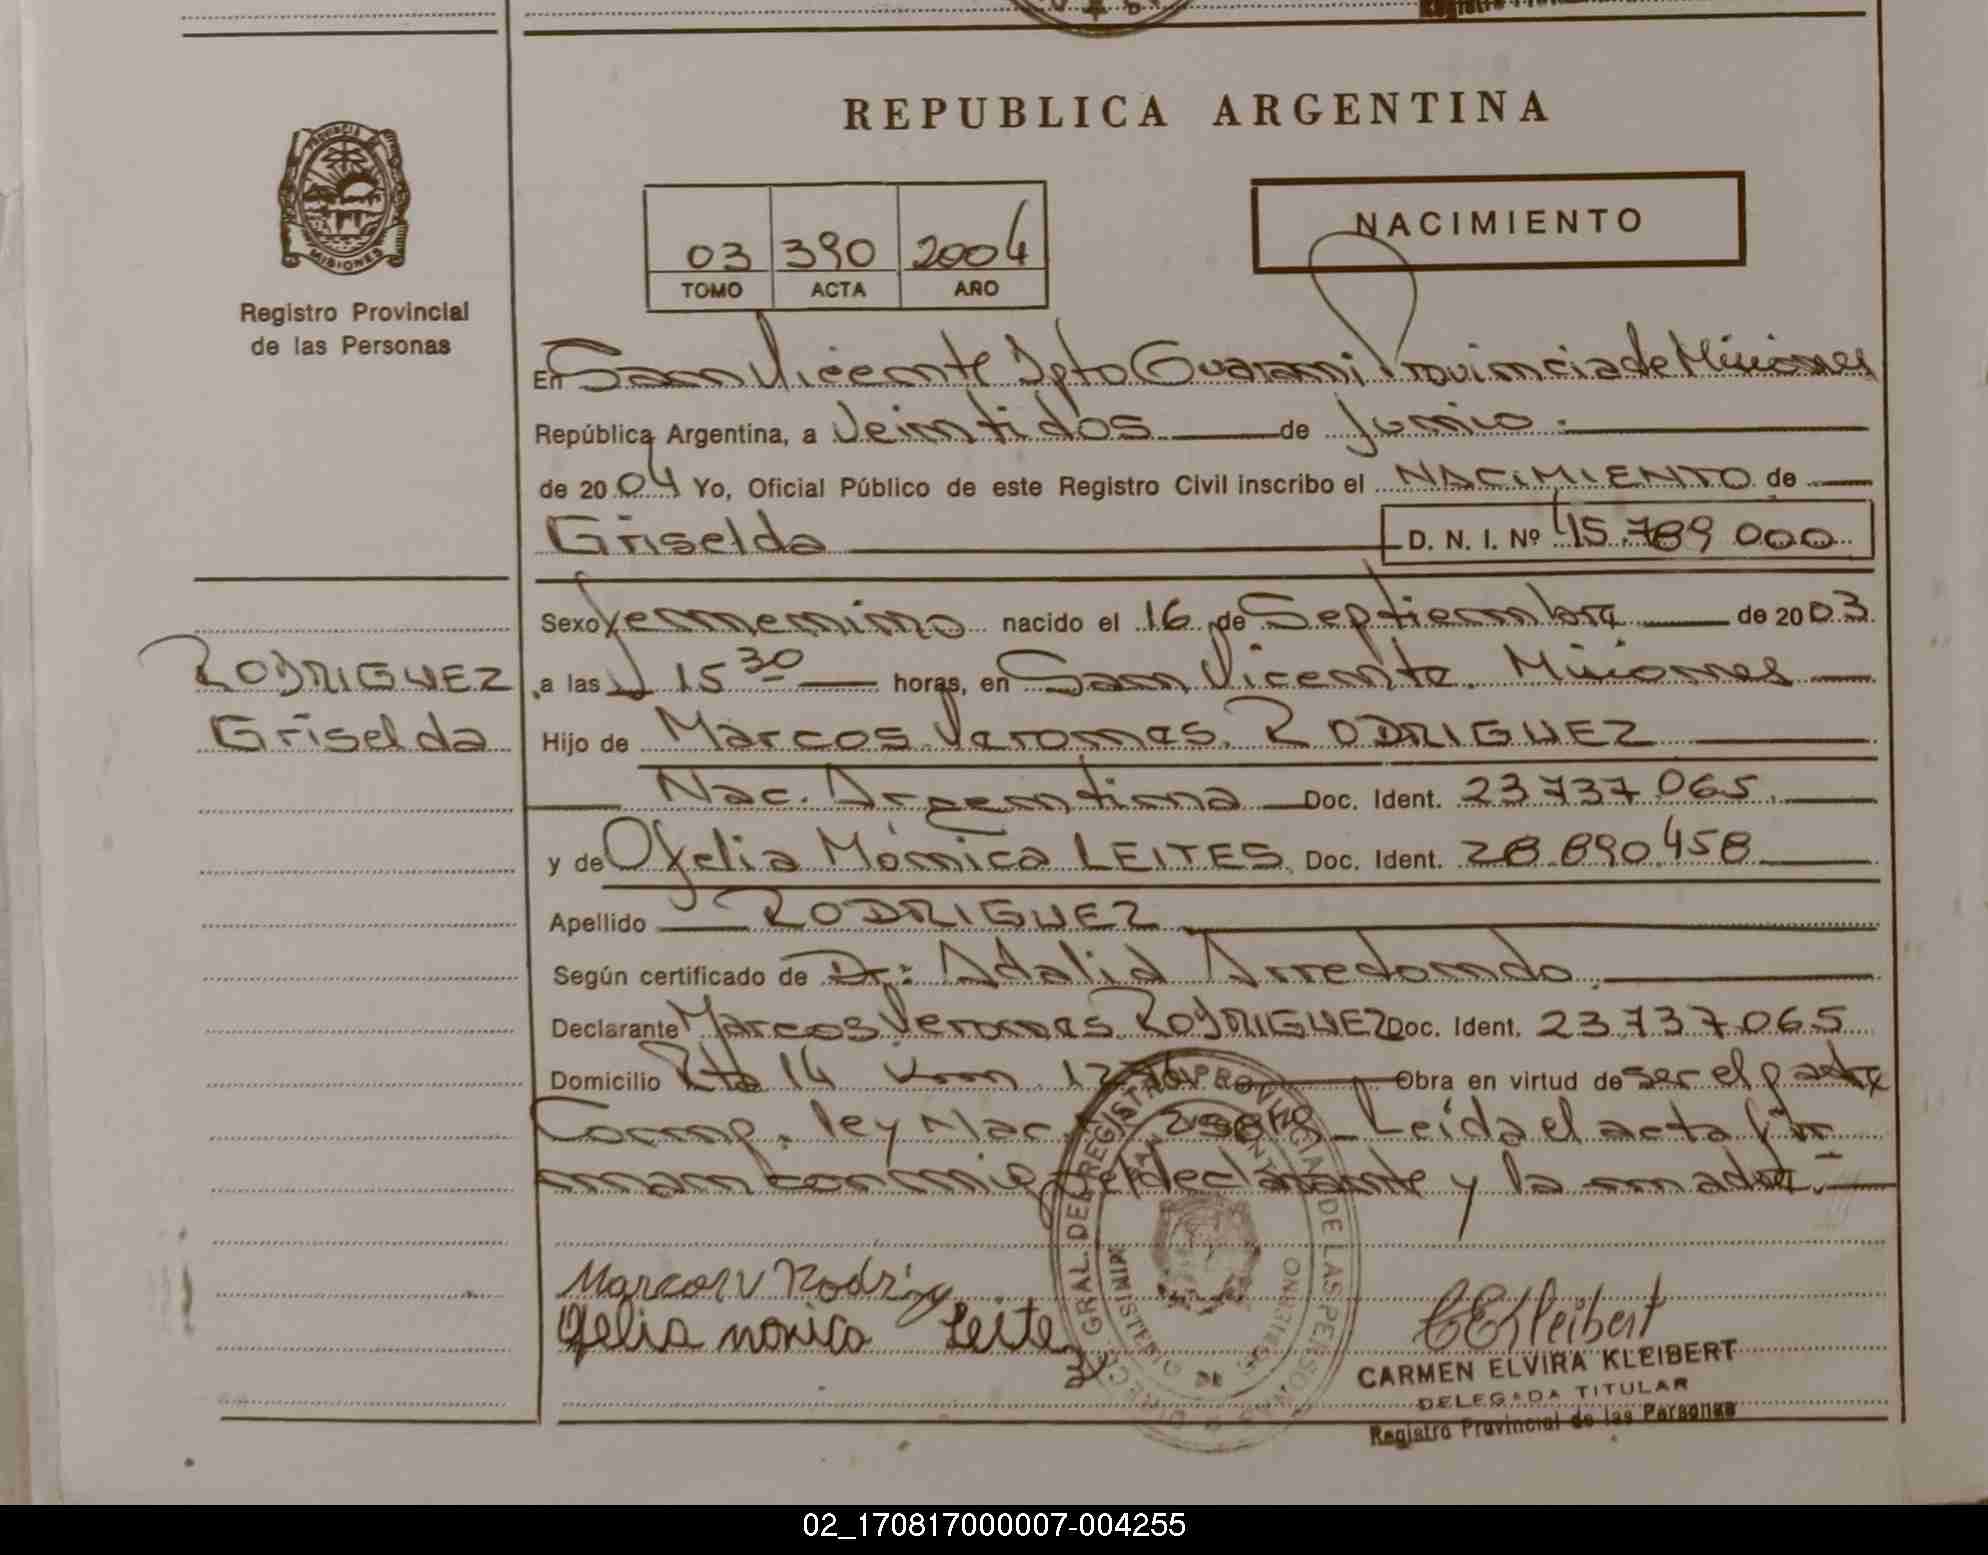 REPUBLICA ARGENTINA
PROVINCIA
MISIONES
Registro Provincial
de las Personas
03 390 2004
TOMO ACTA AÑO
NACIMIENTO
En San Vicente Dpto Guarani Provincia de Misiones
República Argentina, a Veintidos de Junio.
de 2004 Yo, Oficial Público de este Registro Civil inscribo el NACIMIENTO de
Griselda D. N. I. Nº 45.789 000
Sexo femenino nacido el 16 de Septiembre de 2003
RODRIGUEZ
Griselda
a las 15 30 horas, en San Vicente. Misiones
Hijo de Marcos Veromas. RODRIGUEZ
Nac. Argentina Doc. Ident. 23 737 065.
y de Ofelia Mónica LEITES. Doc. Ident. 28.890.458
Apellido RODRIGUEZ
Según certificado de Dr: Adalid Arredondo
Declarante Marcos Veromas RODRIGUEZ Doc. Ident. 23 737 065
Domicilio Rta 14 Km Obra en virtud de ser el padre
Comp. ley Nac. Leida el acta fir
man conmigo el declarante y la madre.
Marcos V Rodrig
Ofelia monica Leite
DIRECC. GRAL. DEL REGISTRO PROVINCIAL DE LAS PERSONAS
MINISTERIO DE GOBIERNO
CEKleibert
CARMEN ELVIRA KLEIBERT
DELEGADA TITULAR
Registro Provincial de las Personas
02_170817000007-004255